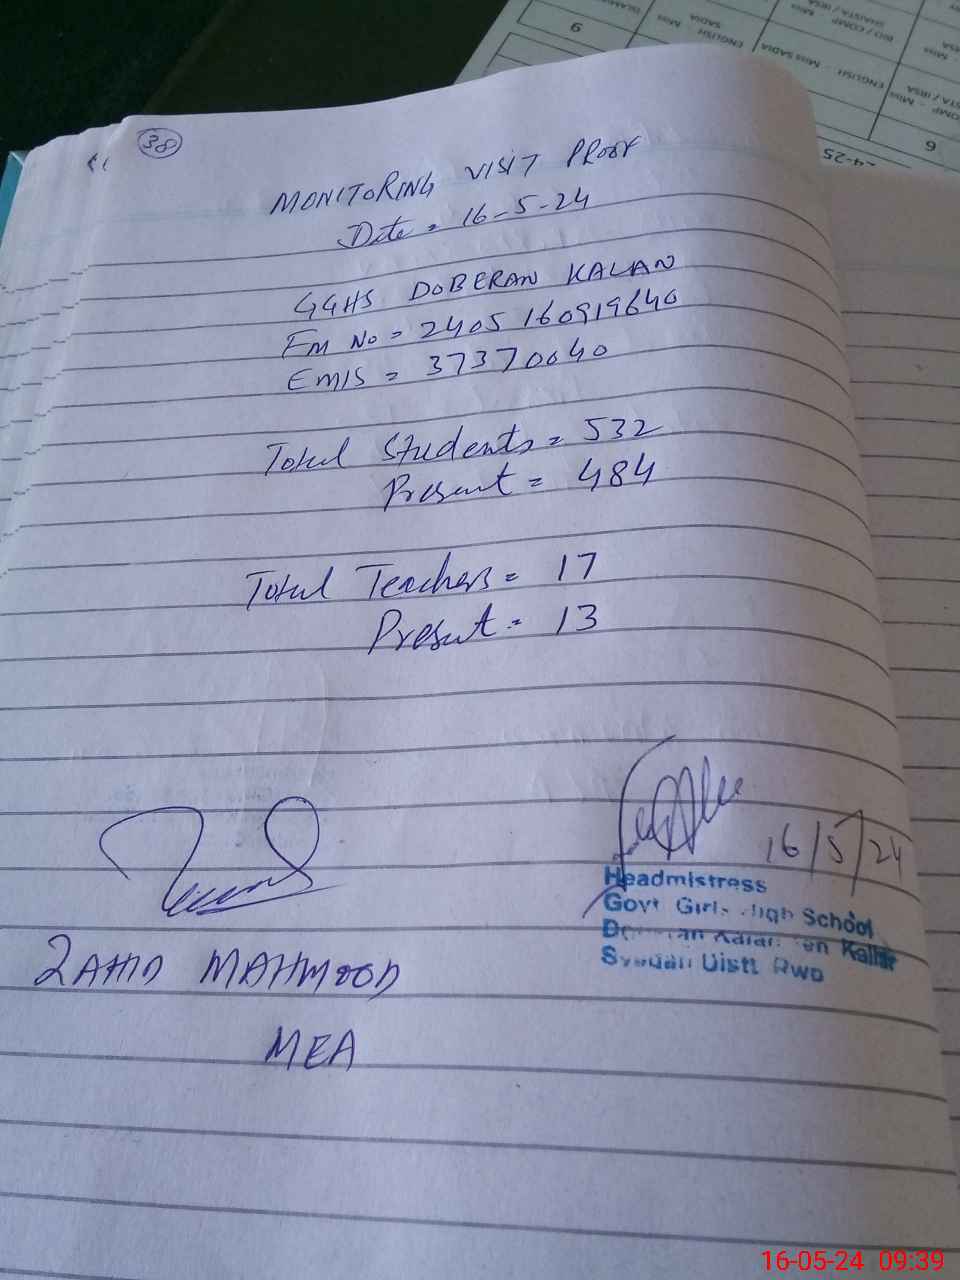 38
MONITORING VISIT PROOF
Date = 16-5-24
GGHS DOBERAN KALAN
Fm No = 2405160919640
EMIS = 37370040
Total Students = 532
Present = 484
Total Teachers = 17
Present = 13
16/5/24
Headmistress
Govt Girls High School
Kallar
Syedan Distt Rwp
ZAHID MAHMOOD
MEA
9
ENGLISH - Miss SADIA
6
24-25
16-05-24 09:39